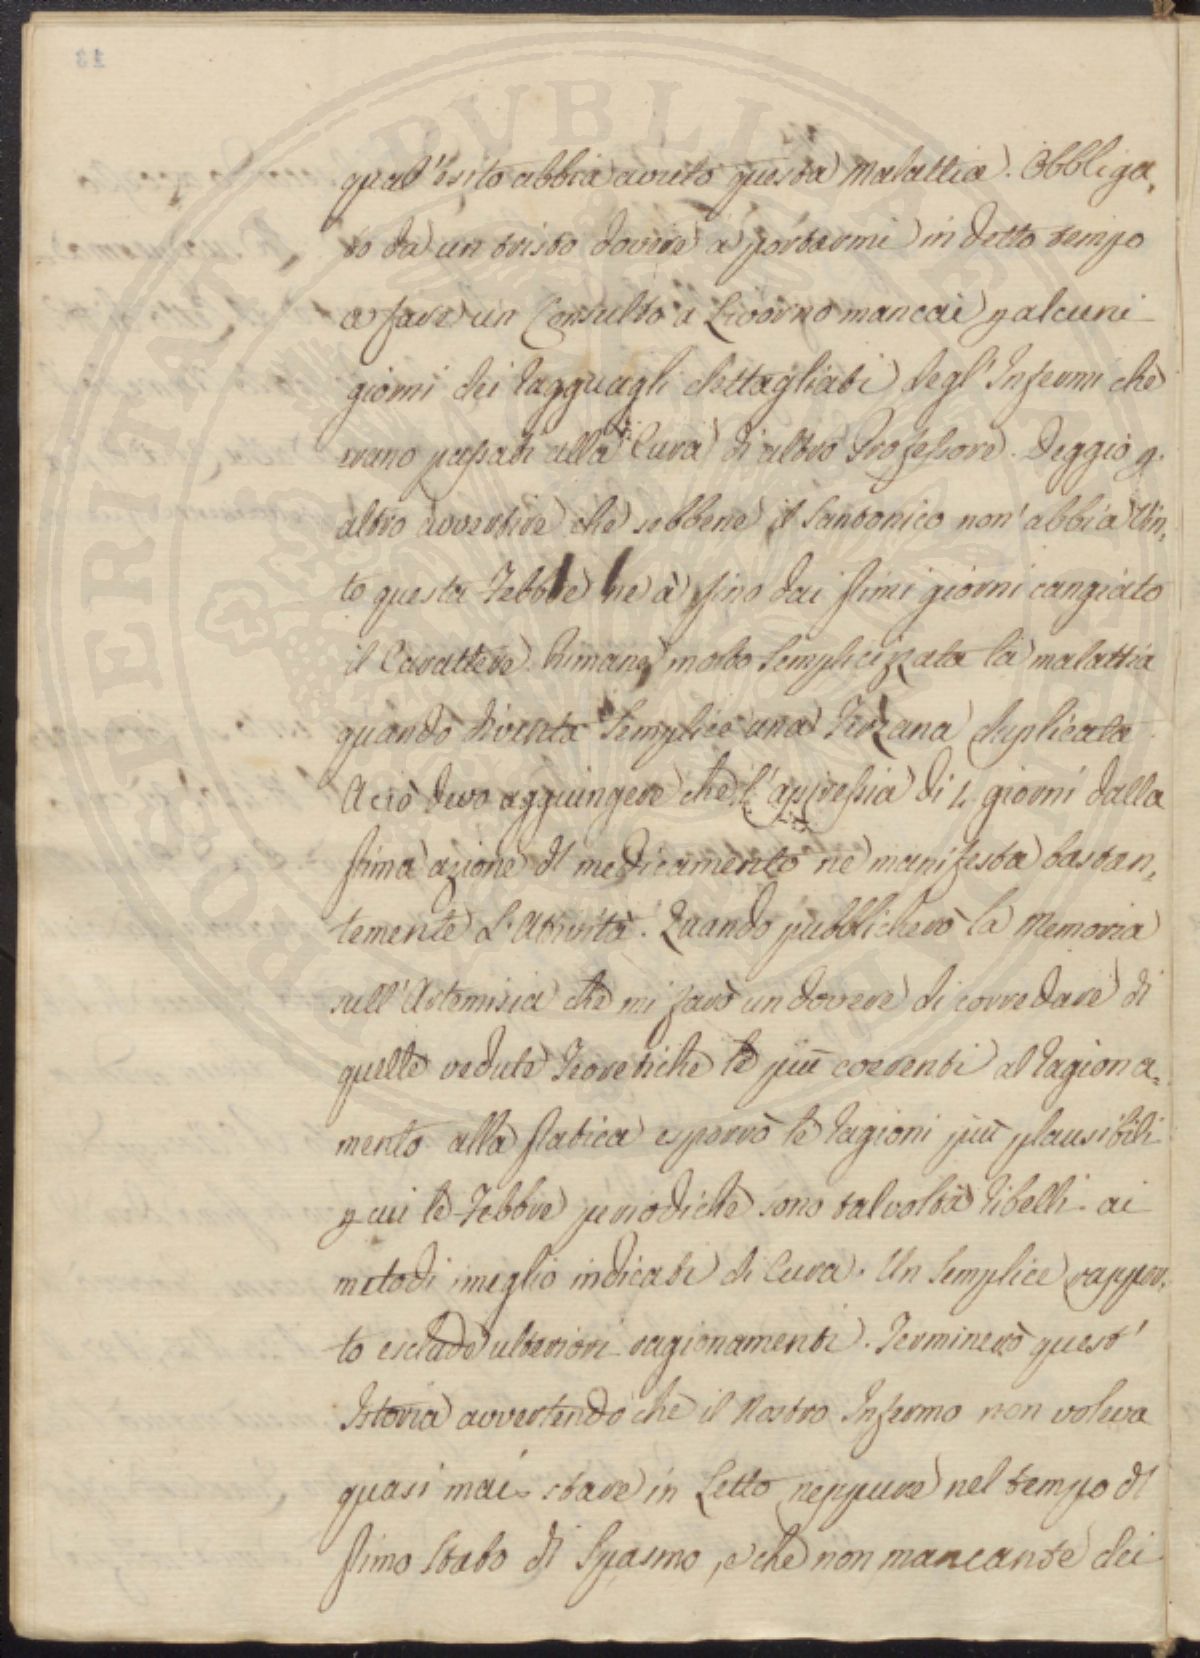 qual'esito abbia avuto questa Malattia. Obbliga,
to da un tristo dovere a portarmi in detto tempo
a fare un Consulto a Livorno mancai p alcuni
giorni dei ragguagli dettagliati degl'Infermi che
erano passati alla Cura di altro Professore. Deggio p.
altro avvertire che sebbene il Santonico non abbia Vin,
to questa Febbre ne à fino dai primi giorni cangiato
il Carattere. Rimane molto semplicizzata la malattia
quando diventa semplice una Terzana duplicata
A ciò devo aggiungere che l'appressia di 4 giorni dalla
prima azione dl medicamento ne manifesta bastan,
temente l'Attività. Quando pubblicherò la Memoria
sull'Artemisia che mi farò un dovere di corredare di
quelle vedute Teoretiche le più coerenti al ragiona,
mento alla pratica esporrò le ragioni più plausibili
p cui le Febbre periodiche sono talvolta ribelli ai
metodi meglio indicati di Cura. Un semplice rappor,
to esclude ulteriori ragionamenti. Terminerò quest'
Istoria avvertendo che il Nostro Infermo non voleva
quasi mai stare in Letto neppure nel tempo dl
primo Stato di Spasmo, e che non mancante dei